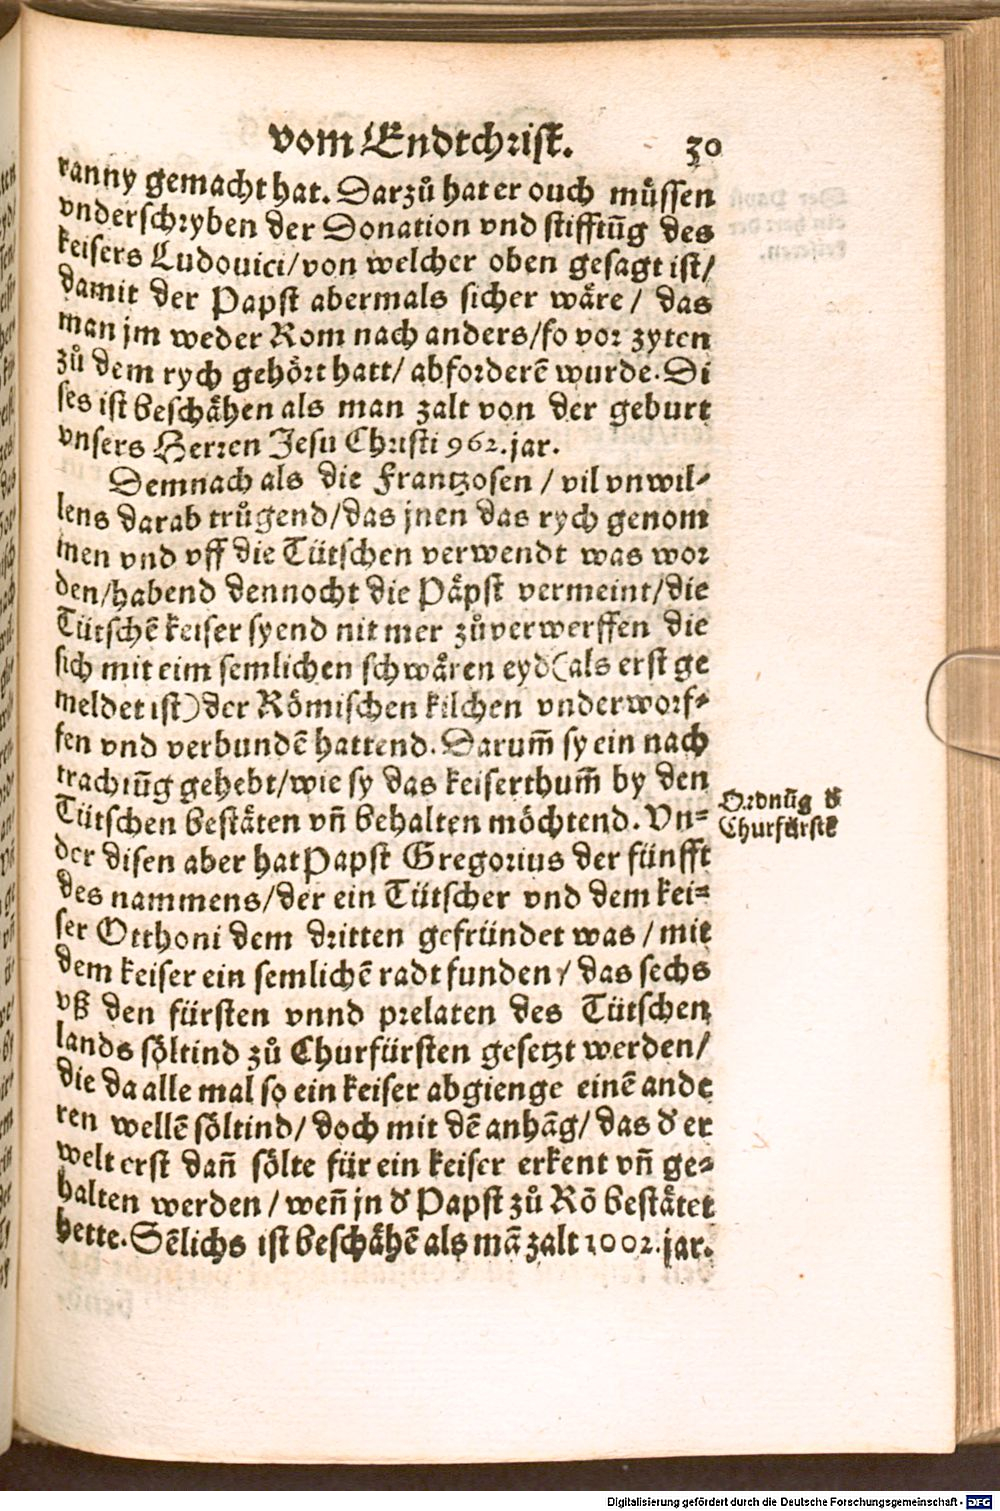 vom Endtchrist. 30
ranny gemacht hat. Darzů hat er ouch müssen
vnderschryben der Donation vnd stifftūg des
keisers Ludouici/von welcher oben gesagt ist/
damit der Papst abermals sicher wäre/ das
man jm weder Rom nach anders/so vor zyten
zů dem rych gehört hatt/ abforderē wurde. Di
ses ist beschähen als man zalt von der geburt
vnsers Herren Jesu Christi 962. jar.
Demnach als die Frantzosen / vil vnwil-
lens darab trůgend/das jnen das rych genom
men vnd vff die Tütschen verwendt was wor
den/habend dennocht die Päpst vermeint/die
Tütschē keiser syend nit mer zůverwerffen die
sich mit eim semlichen schwären eyd(als erst ge
meldet ist)der Römischen kilchen vnderworf-
fen vnd verbundē hattend. Darum̄ sy ein nach
trachtūg gehebt/wie sy das keiserthum̄ by den
Tütschen bestäten vn̄ behalten möchtend. Vn-
der disen aber hat Papst Gregorius der fünfft
des nammens/der ein Tütscher vnd dem kei-
ser Otthoni dem dritten gefründet was / mit
dem keiser ein semlichē radt funden / das sechs
vß den fürsten vnnd prelaten des Tütschen
lands söltind zů Churfürsten gesetzt werden/
die da alle mal so ein keiser abgienge einē ande
ren wellē söltind/ doch mit dē anhāg/ das d̓ er
welt erst dan̄ sölte für ein keiser erkent vn̄ ge-
halten werden / wen̄ jn d̓ Papst zů Rō bestätet
hette. Sēlichs ist beschähē als mā zalt 1002. jar.
Ordnūg d̓
Churfürstē
Digitalisierung gefördert durch die Deutsche Forschungsgemeinschaft - DFG